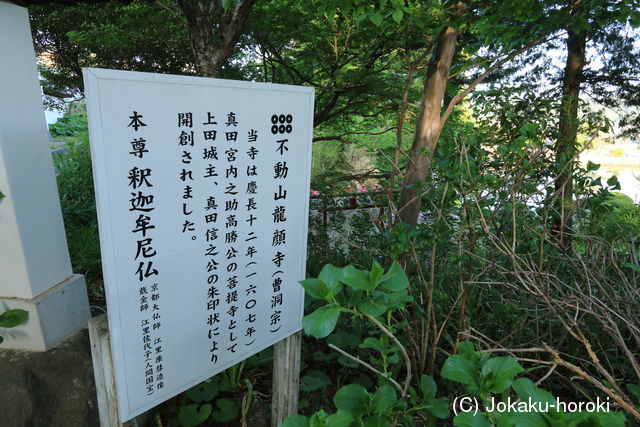 不動山龍顔寺(曹洞宗)
当寺は慶長十二年(一六〇七年)
真田宮内之助高勝公の菩提寺として
上田城主、真田信之公の朱印状により
開創されました。
本尊 釈迦牟尼仏
京都大仏師 江里康慧造像
截金師 江里佐代子(人間国宝)
(C) Jokaku-horoki